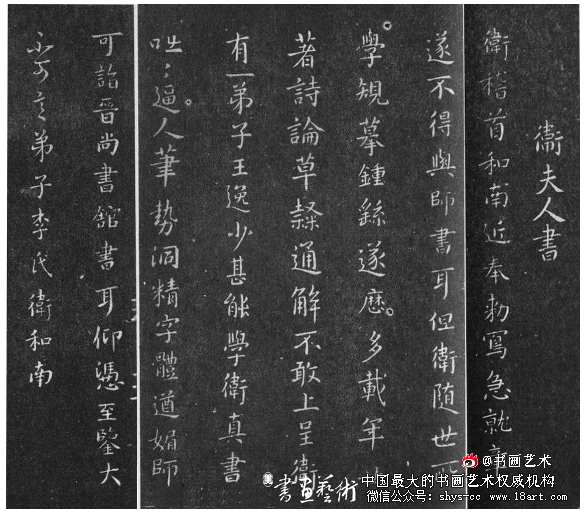 衛夫人書
衛稽首和南近奉勑寫急就章
遂不得與師書耳但衛隨世所
學規摹鍾繇遂歷多載年廿
著詩論草隸通解不敢上呈衛
有一弟子王逸少甚能學衛真書
咄〻逼人筆勢洞精字體遒媚師
可詣晉尚書館書耳仰憑至鑒大
不可言弟子李氏衛和南
@书画艺术
書畫藝術
中国最大的书画艺术权威机构
微信公众号: shys-cc www.18art.com